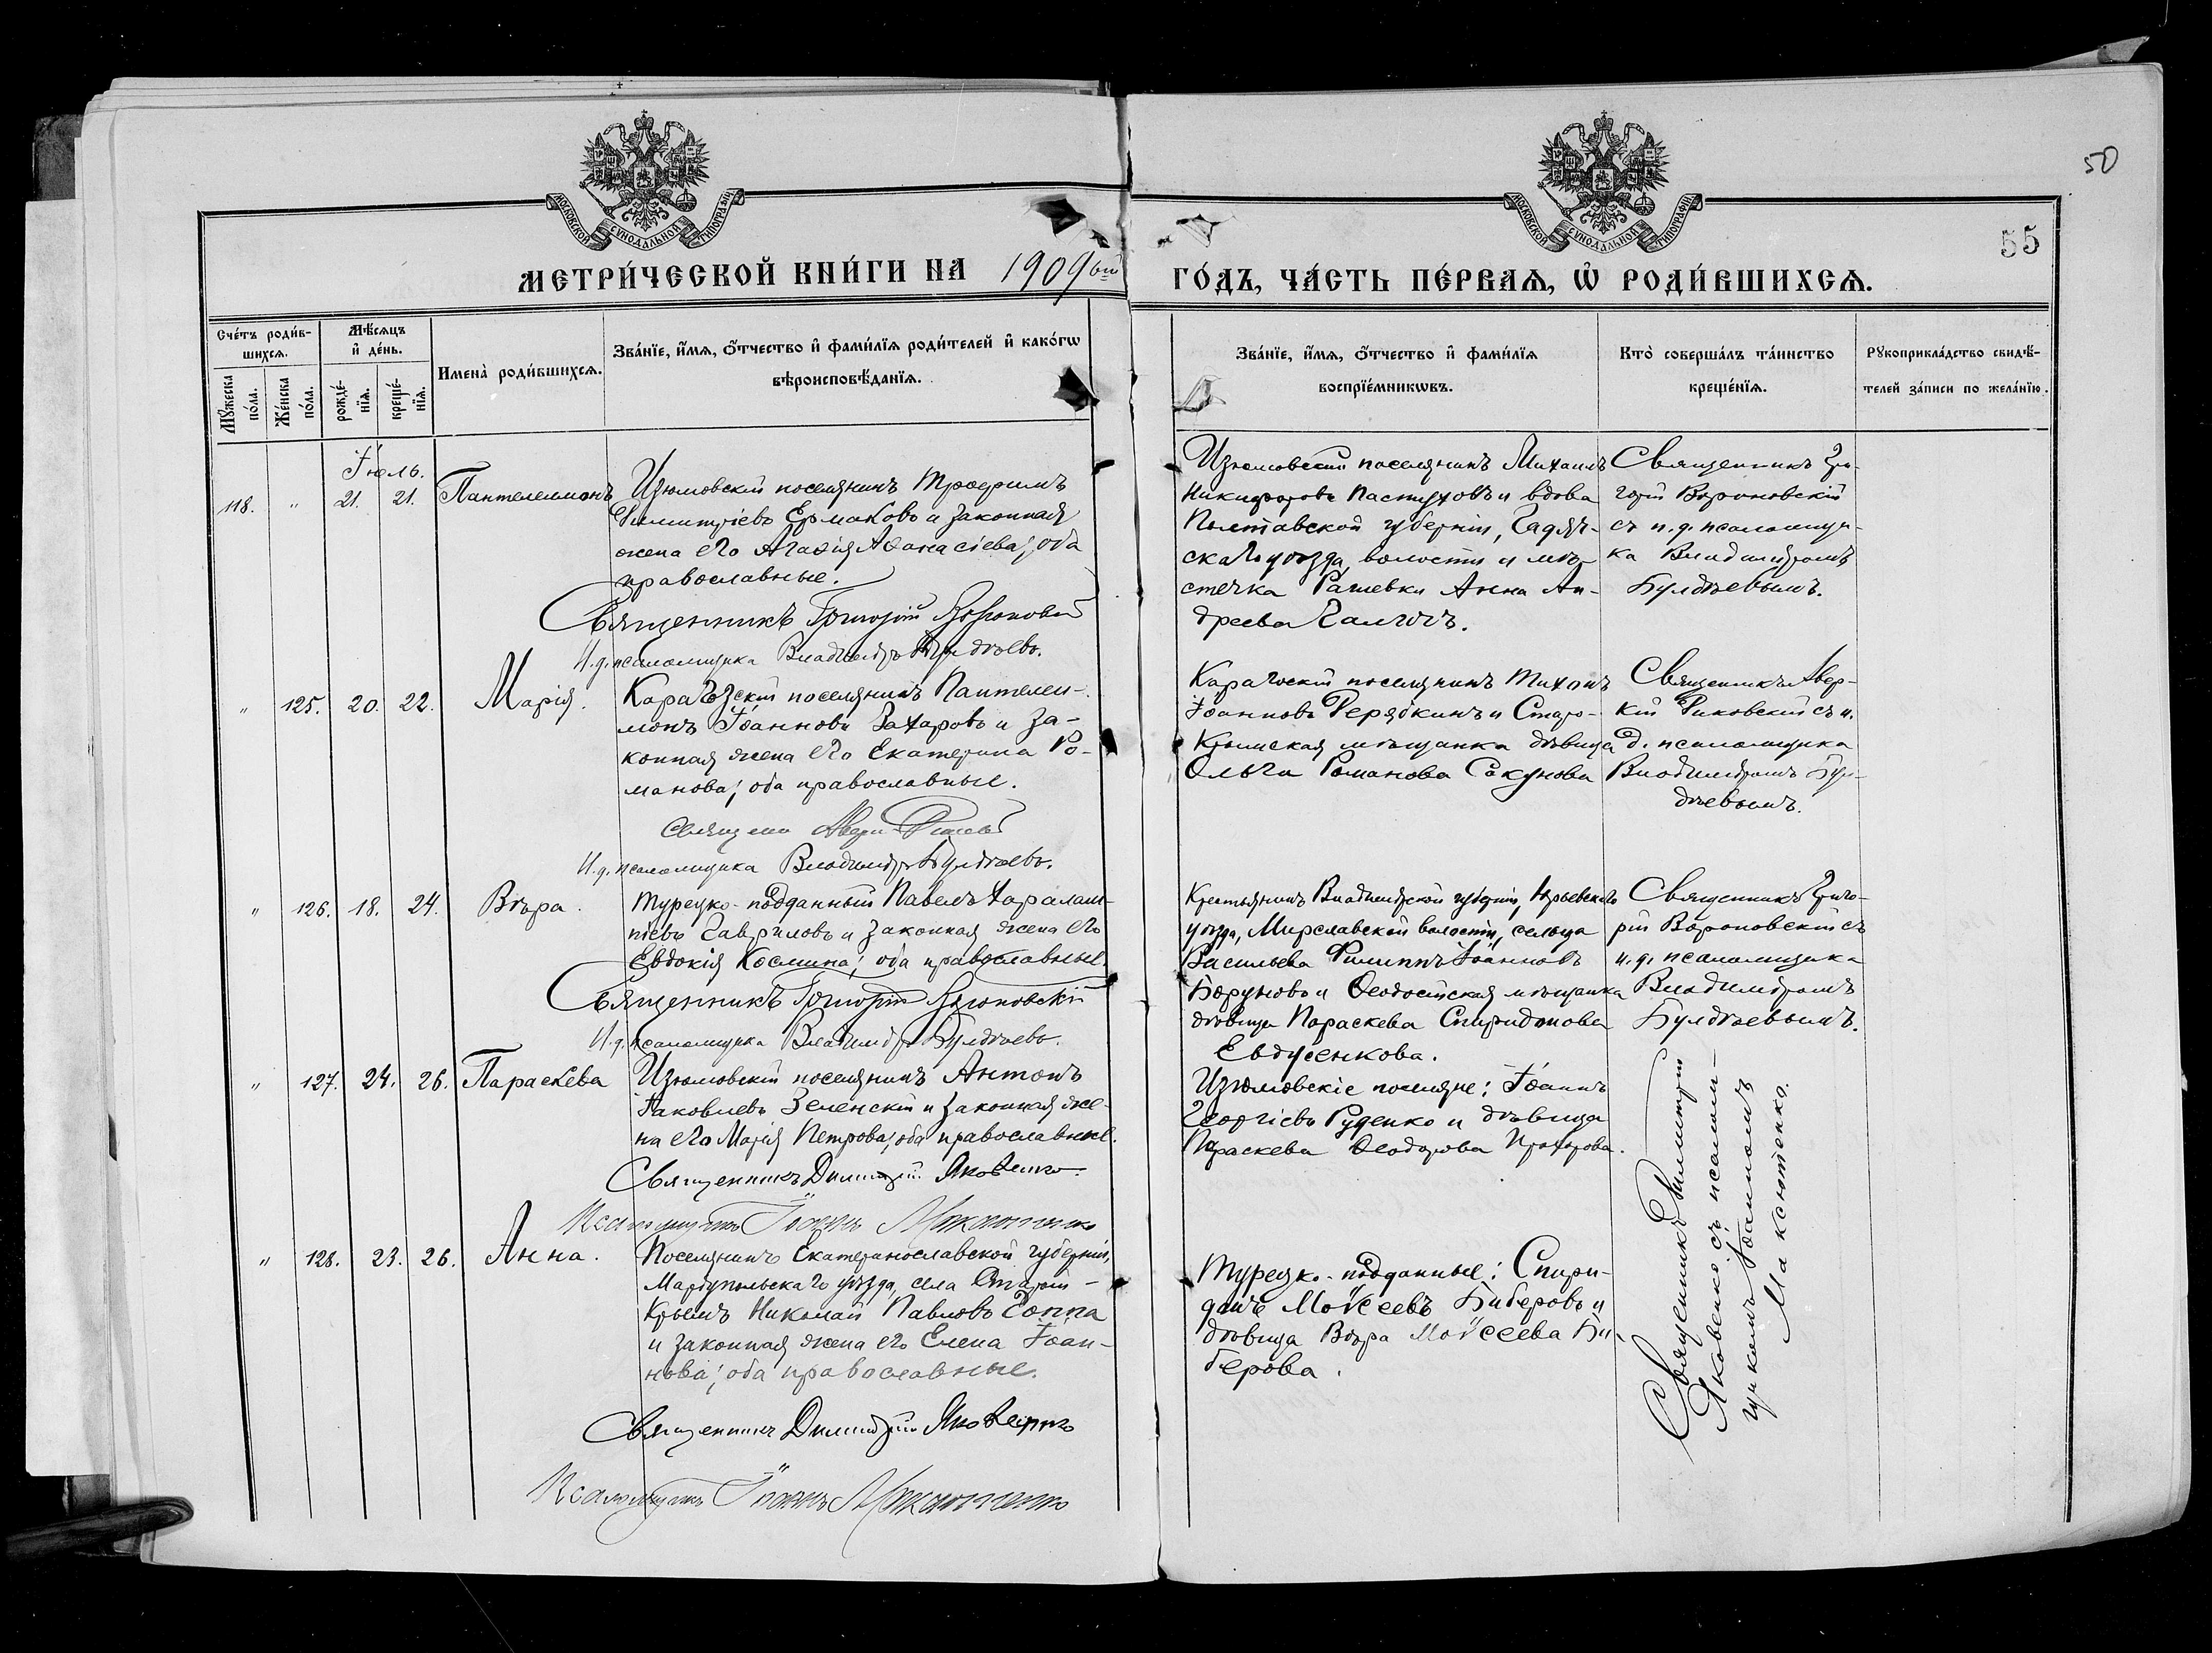 50
55
МОСКОВСКОЙ СѴНОДАЛЬНОЙ ТИПОГРАФІИ
МОСКОВСКОЙ СѴНОДАЛЬНОЙ ТИПОГРАФІИ
МЕТРИ́ЧЕСКОЙ КНИ́ГИ НА 1909ый ГО́ДЪ, ЧА́СТЬ ПЕ́РВАѦ, Ѡ РОДИ́ВШИХСѦ.
Сче́тъ роди́в-
шихсѧ.
Мꙋ́жеска по́ла.
Же́нска по́ла.
Мѣ́сѧцъ
и҆ де́нь.
рожде́-
нїѧ.
креще́-
нїѧ.
Имена̀ роди́вшихсѧ.
Зва́нїе, и҆́мѧ, ѻ҆́тчество и҆ фами́лїѧ роди́телей и҆ како́гѡ
вѣроисповѣ́данїѧ.
Зва́нїе, и҆́мѧ, ѻ҆́тчество и҆ фами́лїѧ
воспрїе́мникѡвъ.
Кто̀ соверша́лъ та́инство
креще́нїѧ.
Рꙋкоприкла́дство свидѣ́-
телей за́писи по жела́нїю.
Іюль.
118. " 21. 21. Пантелеимонъ
Изюмовскій поселянинъ Трофимъ
Димитріевъ Ермаковъ и законная
жена его Агафія Аѳанасіева; оба
православные.
Священникъ Григорій Вороновскій
И.д. псаломщика Владиміръ Булдѣевъ.
Изюмовскій поселянинъ Михаилъ
Никифоровъ Пастуховъ и вдова
Полтавской губерніи, Гадяч-
скаго уѣзда, волости и мѣ-
стечка Рашевки Анна Ан-
дреева
Священникъ Гри-
горій Вороновскій
съ и.д. псаломщи-
ка Владиміромъ
Булдѣевымъ.
" 125. 20. 22. Марія.
Карагозскій поселянинъ Пантелеи-
монъ Іоанновъ Захаровъ и за-
конная жена его Екатерина Ро-
манова; оба православные.
И.д. псаломщика Владиміръ Булдѣевъ.
поселянинъ Тихонъ
Іоанновъ Ферябкинъ и Старо-
Крымская мѣщанка дѣвица
Ольга Романова Сакунова
Священникъ Авер-
кій съ и.
д. псаломщика
Владиміромъ Бул-
дѣевымъ.
" 126. 18. 24. Вѣра.
Турецко-подданный Павелъ Харалам-
піевъ Гавриловъ и законная жена его
Евдокія Космина; оба православные.
Священникъ Григорій Вороновскій
И.д. псаломщика Владиміръ Булдѣевъ.
Крестьянинъ Владимірской губерніи, Юрьевскаго
уѣзда, Мирславской волости, сельца
Васильева Филиппъ Іоанновъ
Борунovъ и Ѳеодосійская мѣщанка
дѣвица Параскева Спиридонова
Евдусенкова.
Священникъ Григо-
рій Вороновскій съ
и.д. псаломщика
Владиміромъ
Булдѣевымъ.
" 127. 24. 26. Параскева
Изюмовскій поселянинъ Антонъ
Іаковлевъ Зеленскій и законная же-
на его Марія Петрова; оба православные.
Священникъ Димитрій Яковенко.
Псаломщикъ Іоаннъ Максютенко
Изюмовскіе поселяне: Іоаннъ
Георгіевъ Руденко и дѣвица
Параскева Ѳеодорова Прохорова.
" 128. 23. 26. Анна.
Поселянинъ Екатеринославской губерніи,
Маріупольскаго уѣзда, села Старый-
Крымъ Николай Павловъ Гоппа
и законная жена его Елена Іоан-
нова; оба православные.
Священникъ Димитрій Яковенко
Псаломщикъ Іоаннъ Максютенко
Турецко-подданные: Спири-
донъ Моѵсеевъ Биберовъ и
дѣвица Вѣра Моѵсеева Би-
берова.
Священникъ Димитрій
Яковенко съ псалом-
щикомъ Іоанномъ
Максютенко.